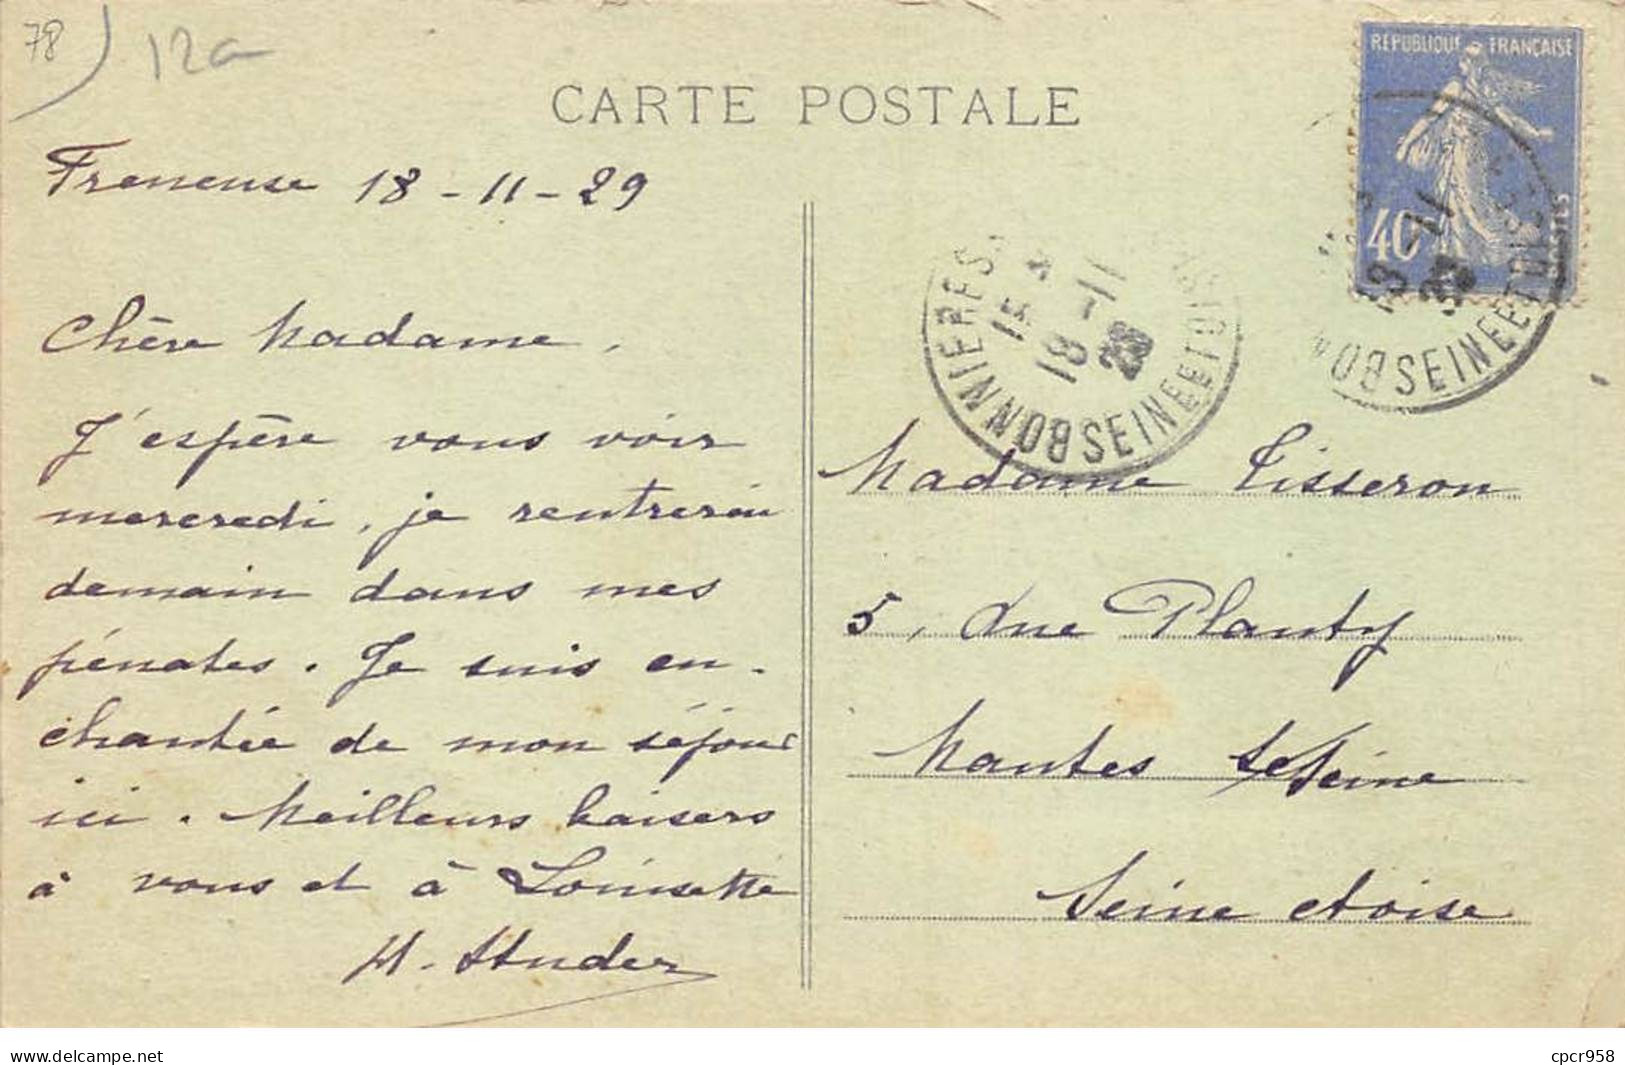 78
12a
CARTE POSTALE
REPUBLIQUE FRANÇAISE
40
POSTES
Freneuse 18-11-29
BONNIERES
18-11
29
SEINE ET OISE
SEINE ET OISE
Chère Madame,
J'espère vous voir
mercredi, je rentrerai
demain dans mes
pénates. Je suis en-
chantée de mon séjour
ici. Meilleurs baisers
à vous et à Louisette
H. Studer
Madame Tisseron
5, Rue Planty
Mantes s/Seine
Seine et oise
cpcr958
https://www.delcampe.net